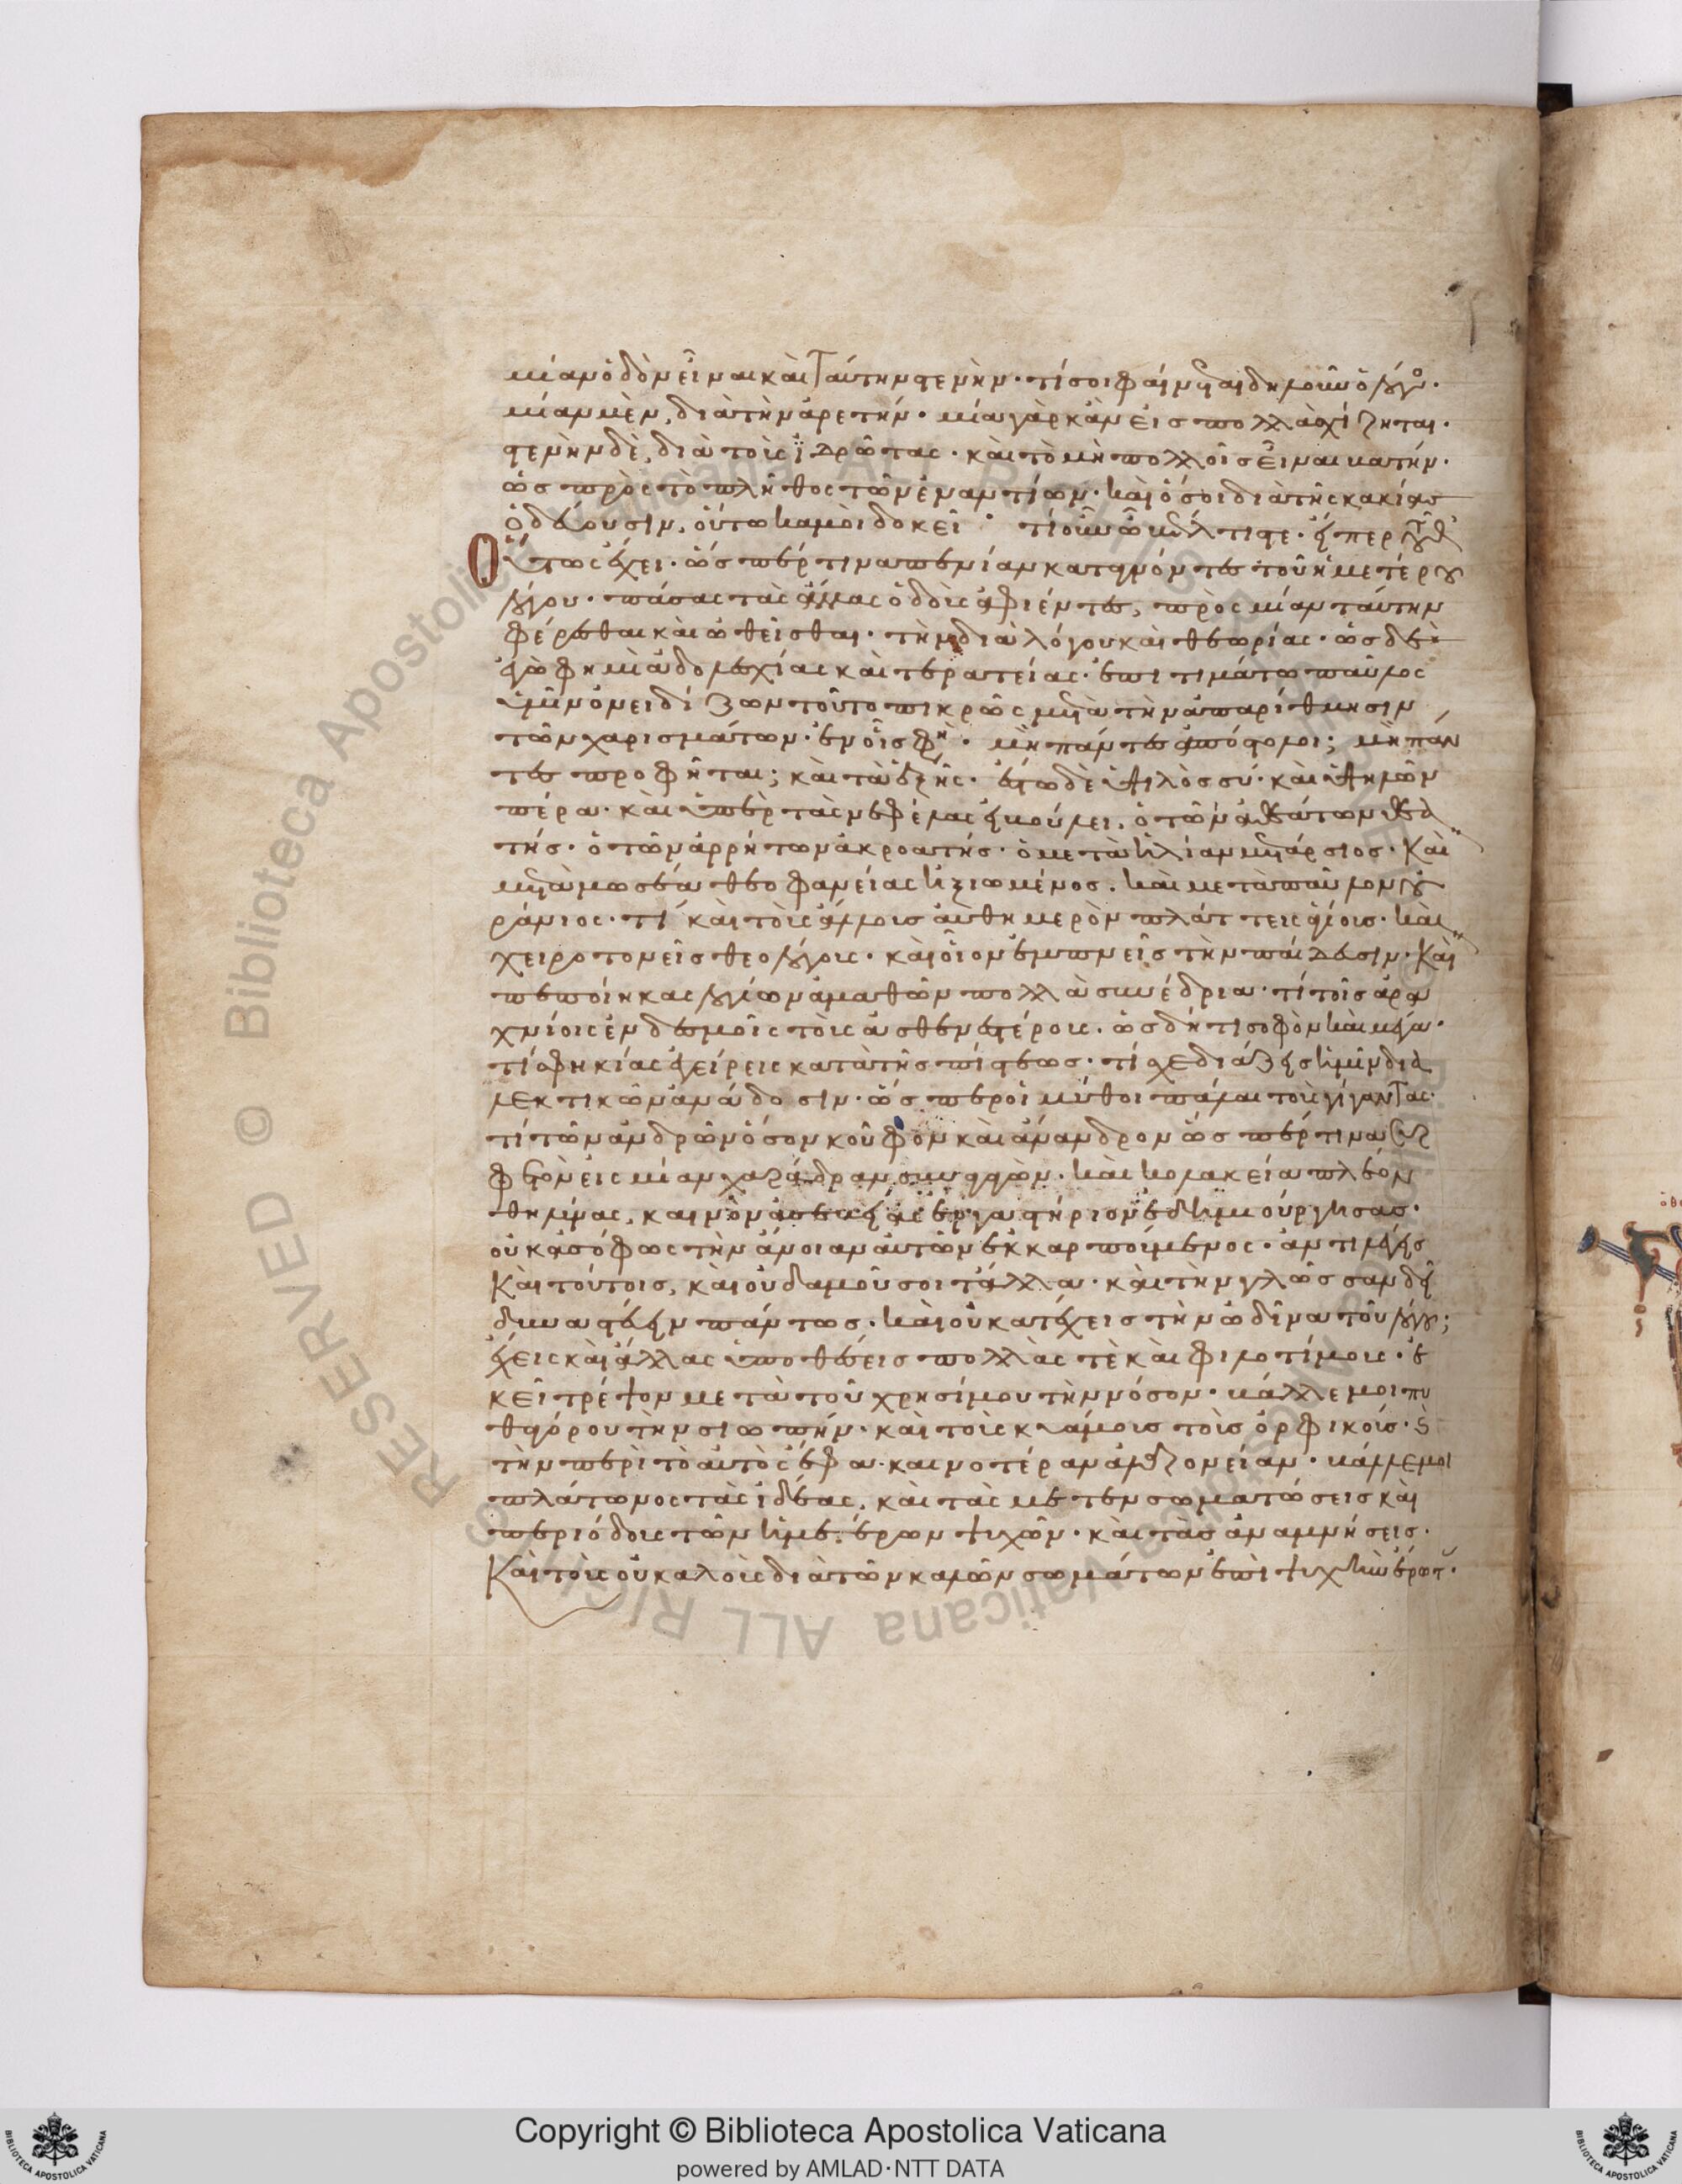 μίαν ὁδὸν εἶναι καὶ ταύτην στενὴν· τί σοι φαίνεται δηλοῦν ὁ λόγος·
μίαν μὲν, διὰ τὴν ἀρετήν· μία γὰρ κἂν εἰς πολλὰ σχίζηται·
στενὴν δὲ, διὰ τοὺς ἱδρῶτας· καὶ τὸ μὴ πολλοῖς εἶναι βατήν·
ὡς πρὸς τὸ πλῆθος τῶν ἐναντίων· καὶ ὅσοι διὰ τῆς κακίας
ὁδεύουσιν, οὕτω κἀμοὶ δοκεῖ· τί οὖν ὦ βέλτιστε· εἴπερ τοῦθ᾽
Οὕτως ἔχει· ὥσπερ τινὰ πενίαν καταγνόντες τοῦ ἡμετέρου
λόγου· πάσας τὰς ἄλλας ὁδοὺς ἀφιέντες, πρὸς μίαν ταύτην
φέρεσθαι καὶ ὠθεῖσθαι· τὴν διὰ λόγου καὶ θεωρίας· ὡς δὲ
ἐγώ φημι ἀδολεσχίας καὶ τερατείας· ἐπιτιμάτω παῦλος
ὑμῖν ὀνειδίζων τοῦτο πικρῶς μετὰ τὴν ἀπαρίθμησιν
τῶν χαρισμάτων· ἐν οἷς φη· μὴ πάντες ἀπόστολοι; μὴ πάν
τες προφῆται; καὶ τὰ ἑξῆς· ἔστω δὲ ὑψηλὸς σύ· καὶ ὑψηλῶν
πέρα· καὶ ὑπὲρ τὰς νεφέλας εἰ βούλει, ὁ τῶν ἀθεάτων θεα
τής· ὁ τῶν ἀρρήτων ἀκροατής· ὁ μετὰ ἡλίαν μετάρσιος· Καὶ
μετὰ μωσέα θεοφανείας ἠξιωμένος· καὶ μετὰ παῦλον οὐ
ράνιος· τί καὶ τοὺς ἄλλους αὐθημερὸν πλάττεις ἁγίους· καὶ
χειροτονεῖς θεολόγους· καὶ οἷον ἐμπνεῖς τὴν παίδευσιν· Καὶ
πεποίηκας λογίων ἀμαθῶν πολλὰ συνέδρια· τί τοῖς ἀρα
χνίοις ἐνδεσμεῖς τοὺς ἀσθενεστέρους· ὡς δή τι σοφὸν καὶ μέγα·
τί σφηκίας ἐγείρεις κατὰ τῆς πίστεως· τί σχεδιάζεις ἡμῖν δια
λεκτικῶν ἀνάδοσιν· ὥσπερ οἱ μῦθοι πάλαι τοὺς γίγαντας·
τί τῶν ἀνδρῶν ὅσον κοῦφον καὶ ἄνανδρον ὥσπερ τινὰ συρ
φετὸν εἰς μίαν χαράδραν συναγαγὼν· καὶ κολακείᾳ πλέον
θηλύνας, καινὸν ἀσεβείας ἐργαστήριον ἐδημιούργησας·
οὐκ ἀσόφως τὴν ἄνοιαν αὐτῶν ἐκκαρπούμενος· ἀντιλέγεις
Καὶ τούτοις, καὶ οὐδαμοῦ σοι τἄλλα· καὶ τὴν γλῶσσαν δεῖ
δυναστεύειν πάντως· καὶ οὐ κατέχεις τὴν ὠδῖνα τοῦ λόγου;
ἔχεις καὶ ἄλλας ὑποθέσεις πολλάς τε καὶ φιλοτίμους· ἐ
κεῖ τρέψον μετὰ τοῦ χρησίμου τὴν νόσον· βάλλε μοι πυ
θαγόρου τὴν σιωπήν· καὶ τοὺς κυάμους τοὺς ὀρφικούς· καὶ
τὴν περὶ τὸ αὐτὸς ἔφα καινοτέραν ἀλαζονείαν· βάλλε μοι
πλάτωνος τὰς ἰδέας, καὶ τὰς μετενσωματώσεις καὶ
περιόδους τῶν ἡμετέρων ψυχῶν· καὶ τὰς ἀναμνήσεις·
Καὶ τοὺς οὐ καλοὺς διὰ τῶν καλῶν σωμάτων ἐπὶ ψυχὴν ἔρωτ·
Copyright © Biblioteca Apostolica Vaticana
powered by AMLAD·NTT DATA